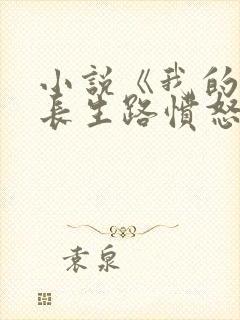 小說《我的
長生路憤怒
袁泉